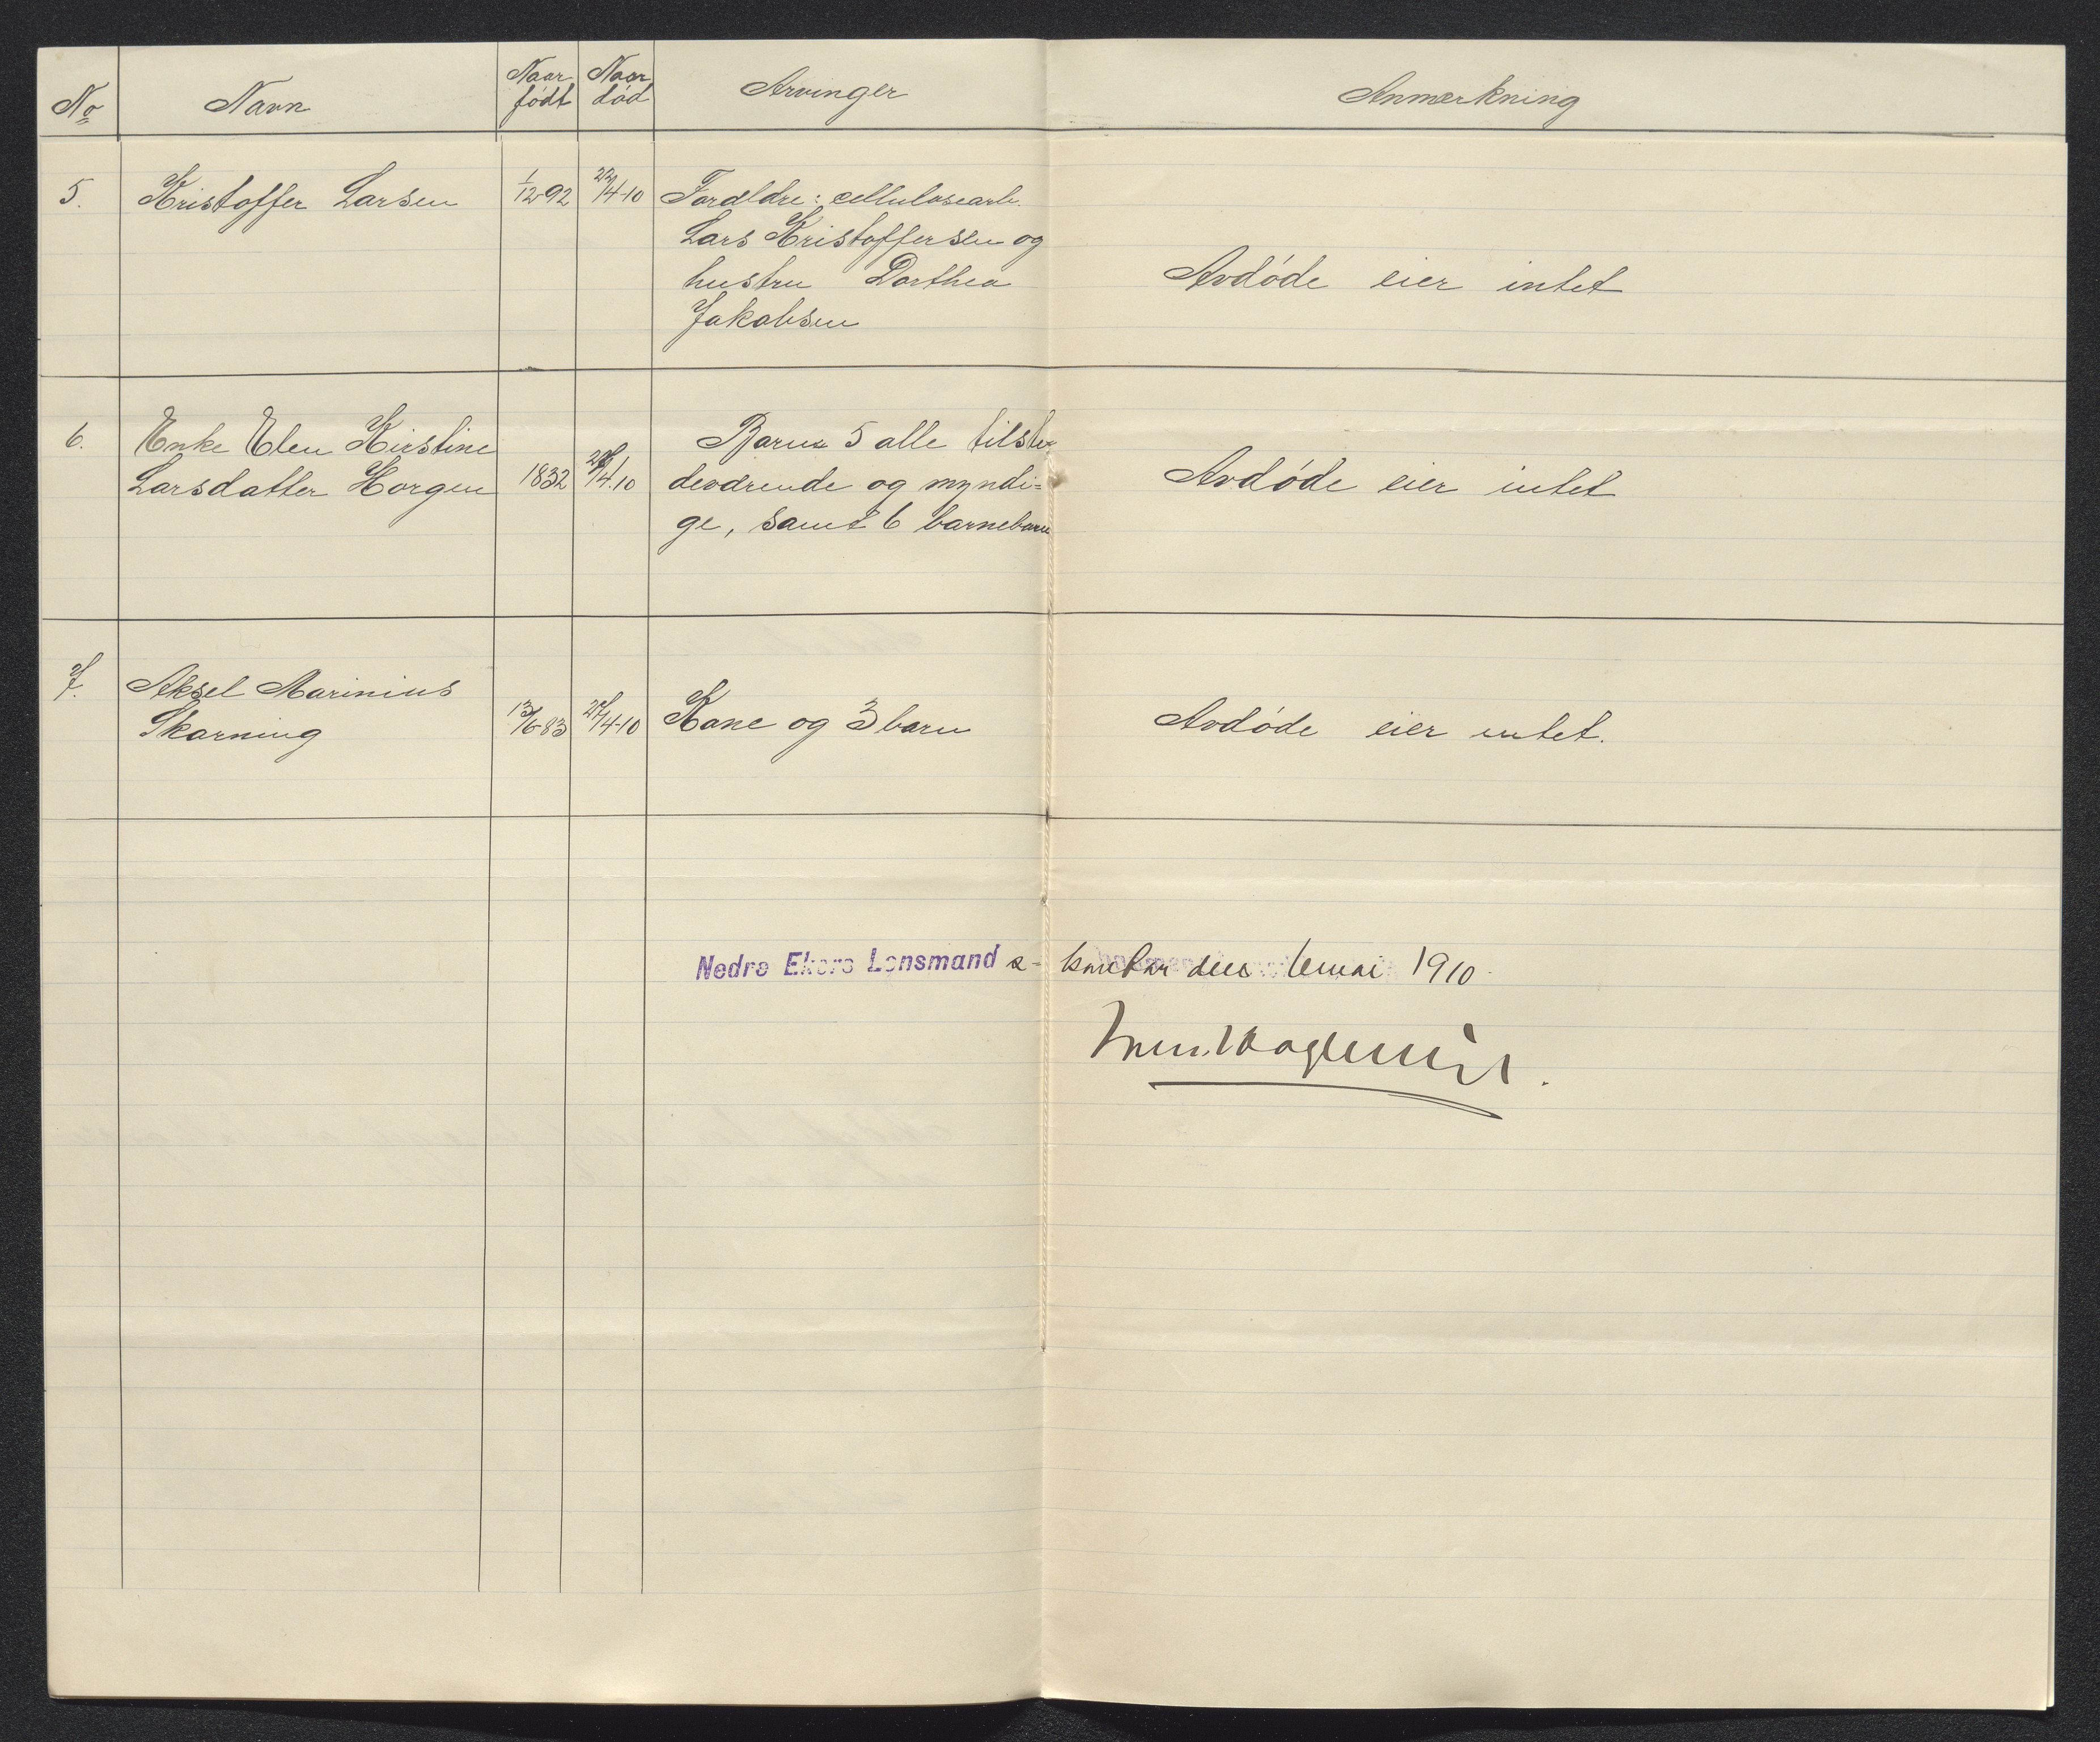 No Navn Naar født Naar død Arvinger Anmerkning
5. Kristoffer Larsen 1/12-92 22/4-10 Forældre: cellulosearb.
Lars Kristoffersen og
hustru Dorthea
Jakobsen
Avdøde eier intet
6. Enke Elen Kirstine
Larsdatter Horgen 1832 /4.10
Barn 5 alle tilste
deværende og myndi=
ge, samt 6 barnebarn
Avdøde eier intet
7. Aksel Marinius
Skarning 13/6-83 /4-10 Kone og 3 barn
Avdøde eier intet.
Nedre Ekers Lensmand s- kontor den 6 mai 1910.